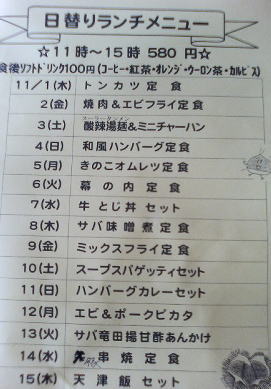 日替りランチメニュー
☆11時～15時 580円☆
食後ソフトドリンク100円(コーヒー・紅茶・オレンジ・ウーロン茶・カルピス)
11／1(木) トンカツ定食
2(金) 焼肉&エビフライ定食
3(土) 酸辣湯麺&ミニチャーハン
4(日) 和風ハンバーグ定食
5(月) きのこオムレツ定食
6(火) 幕の内定食
7(水) 牛とじ丼セット
8(木) サバ味噌煮定食
9(金) ミックスフライ定食
10(土) スープスパゲッティセット
11(日) ハンバーグカレーセット
12(月) エビ&ポークピカタ
13(火) サバ竜田揚甘酢あんかけ
14(水) 串焼定食
15(木) 天津飯セット